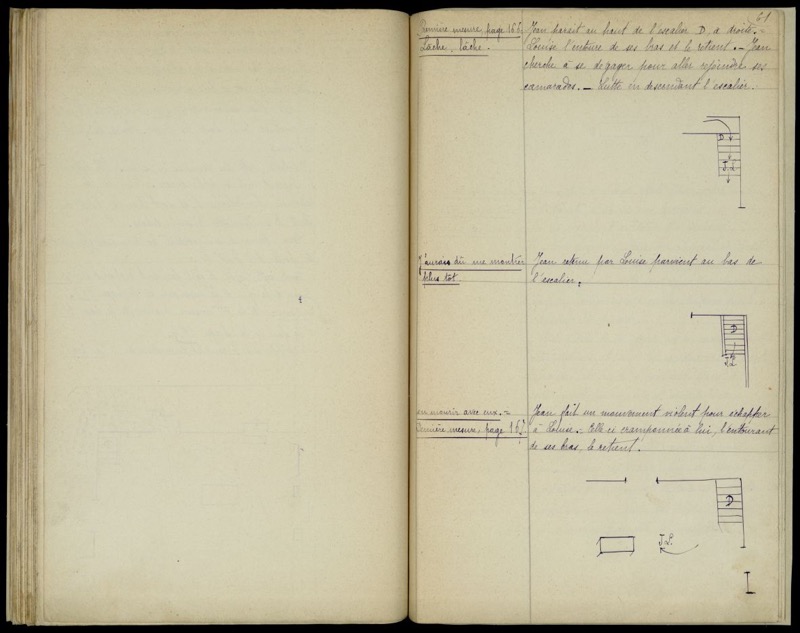 61
Première mesure, page 166.
Lâche, lâche.
Jean paraît au haut de l'escalier D, à droite. =
Louise l'entoure de ses bras et le retient. — Jean
cherche à se dégager pour aller rejoindre ses
camarades. — Lutte en descendant l'escalier.
D
J.L.
J'aurais dû me montrer
plus tôt.
Jean retenu par Louise parvient au bas de
l'escalier.
D
J.L.
ou mourir avec eux. =
Dernière mesure, page 167.
Jean fait un mouvement violent pour échapper
à Louise. Elle ci cramponnée à lui, l'entourant
de ses bras, le retient.
D
J.L.